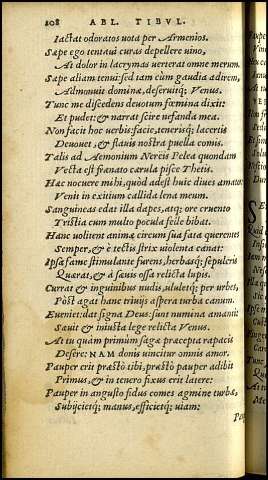 208 ALB. TIBVL.
Iactat odoratos uota per Armenios.
Sæpe ego tentaui curas depellere uino,
At dolor in lacrymas uerterat omne merum.
Sæpe aliam tenui: sed iam cùm gaudia adirem,
Admonuit dominæ, deseruitq; Venus.
Tunc me discedens deuotum fœmina dixit:
Et pudet: & narrat scire nefanda mea.
Non facit hoc uerbis: facie, tenerisq; lacertis
Deuouet, & flauis nostra puella comis.
Talis ad Aemonium Nereis Pelea quondam
Vecta est frænato cærula pisce Thetis.
Hæc nocuere mihi, quòd adest huic diues amator
Venit in exitium callida lena meum.
Sanguineas edat illa dapes, atq; ore cruento
Tristia cum multo pocula felle bibat.
Hanc uolitent animæ circum sua fata querentes
Semper, & è tectis strix uiolenta canat:
Ipsa fame stimulante furens, herbasq; sepulcris
Quærat, & à sæuis ossa relicta lupis.
Currat & inguinibus nudis, ululetq; per urbes,
Pòst agat hanc triuijs aspera turba canum.
Eueniet: dat signa Deus: sunt numina amanti:
Sæuit & iniusta lege relicta Venus.
At tu quàm primùm sagæ præcepta rapacis
Desere: NAM donis uincitur omnis amor.
Pauper erit præstò tibi, præstò pauper adibit
Primus, & in tenero fixus erit latere:
Pauper in angusto fidus comes agmine turbæ,
Subijcietq; manus, efficietq; uiam: